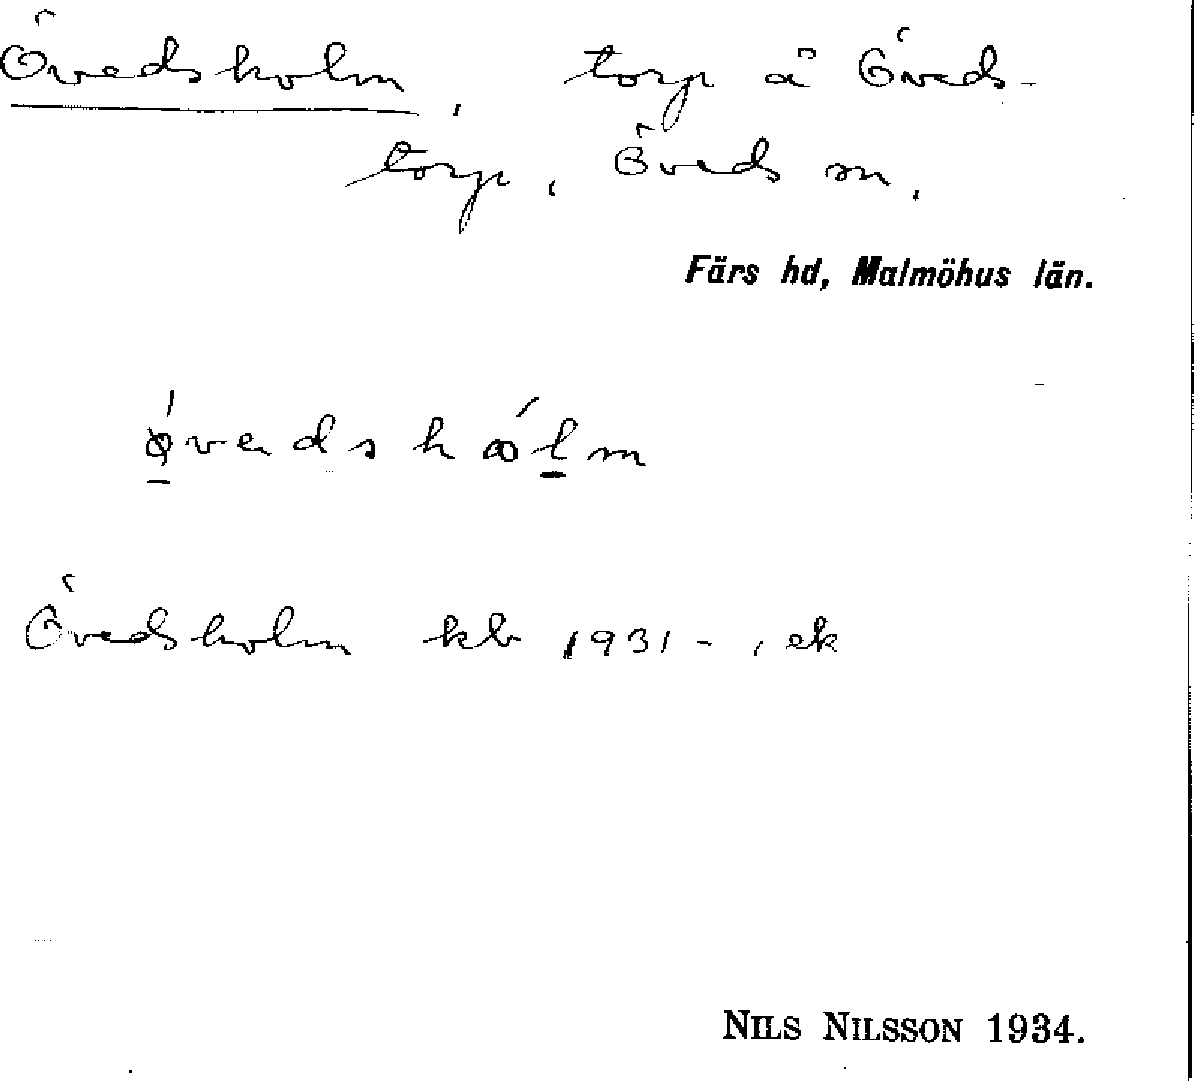 Övedsholm, torp å Öveds-
torp, Öveds sn,
Färs hd, Malmöhus län.
Övedsholm kb 1931-, ek
NILS NILSSON 1934.